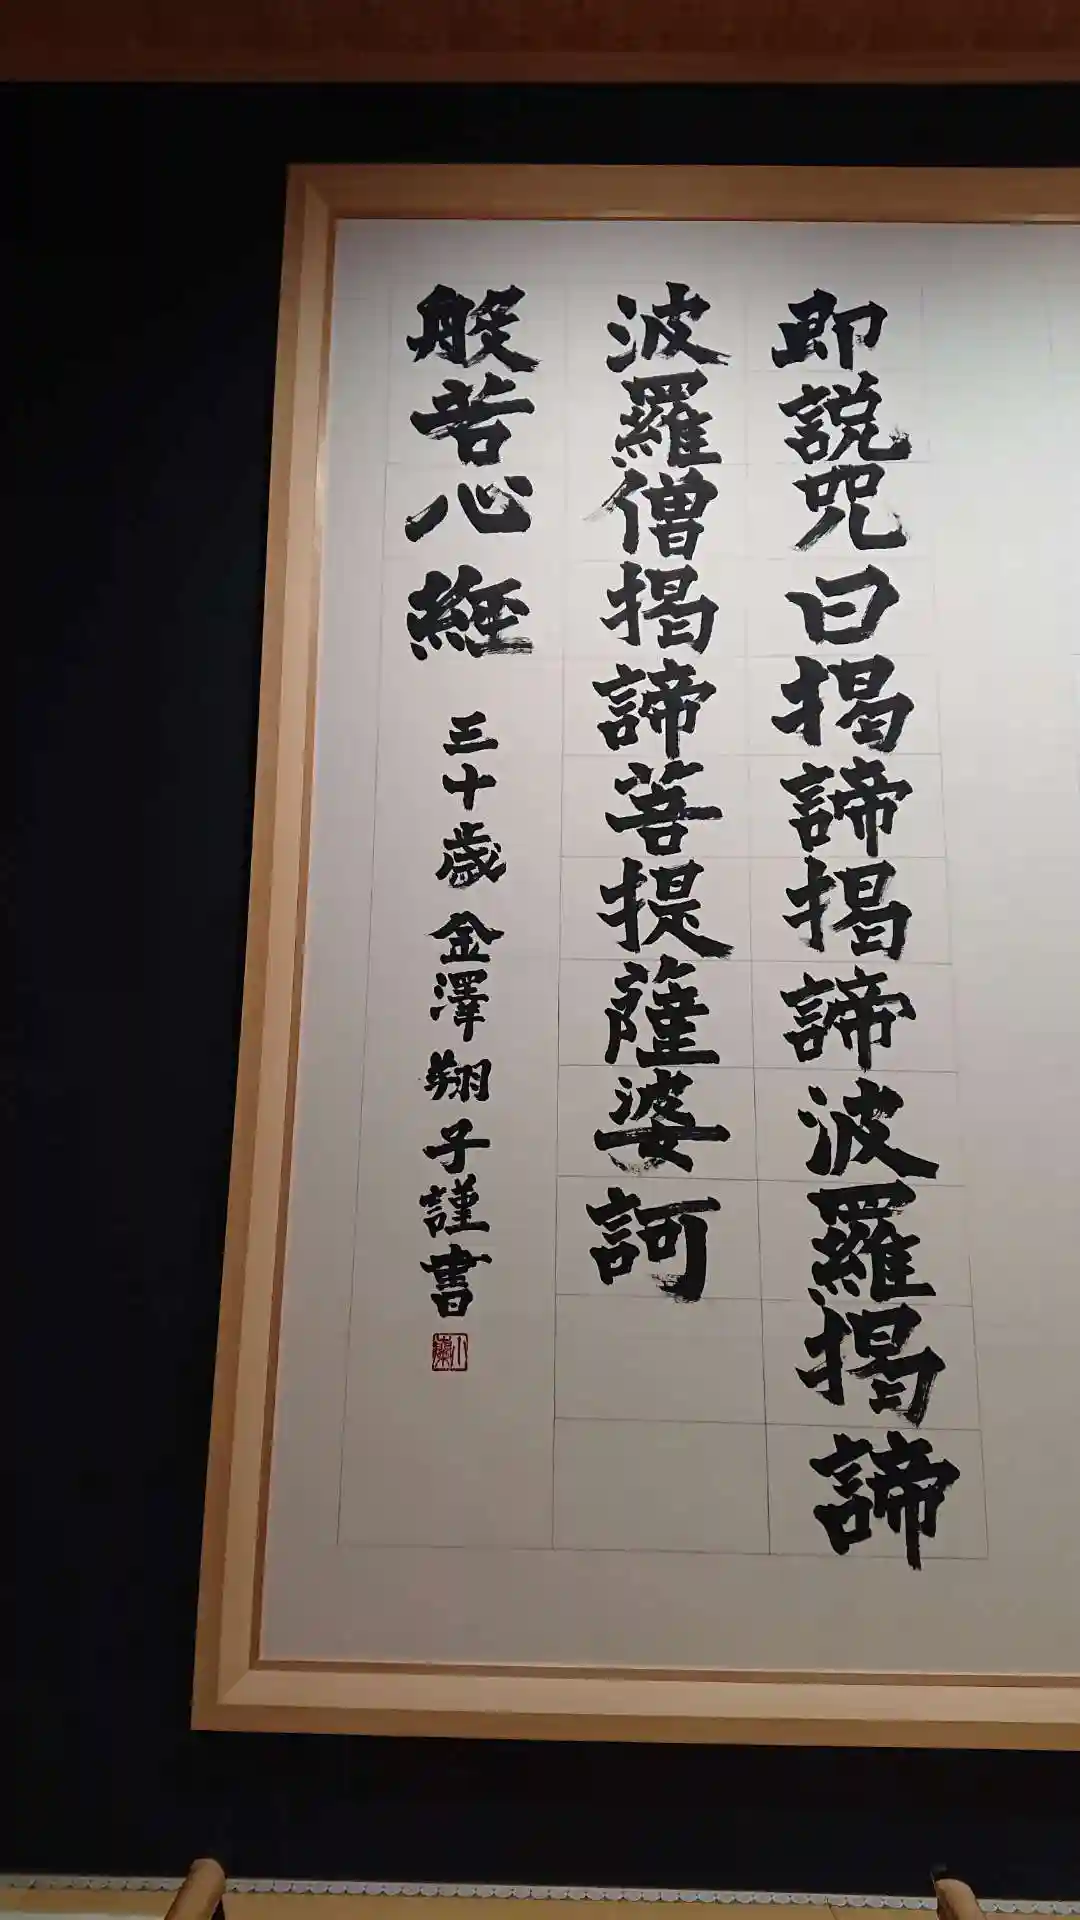 即説咒曰揭諦揭諦波羅揭諦
波羅僧揭諦菩提薩婆訶
般若心経
三十歳 金澤翔子謹書